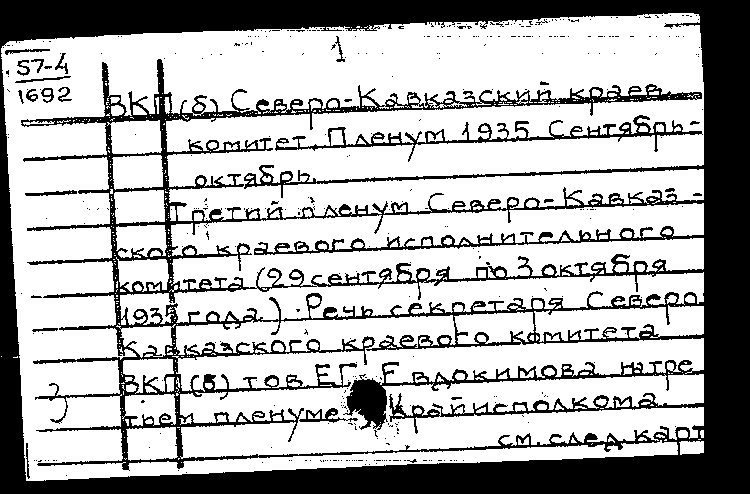 1
57-4
1692
ВКП(б) Северо-Кавказский краев.
комитет. Пленум 1935 Сентябрь-
октябрь.
Третий пленум Северо-Кавказ-
ского краевого исполнительного
комитета (29 сентября по 3 октября
1935 года.). Речь секретаря Северо
Кавказского краевого комитета
ВКП(б) тов ЕГ. Евдокимова на тре
тьем пленуме Крайисполкома.
см. след. карт